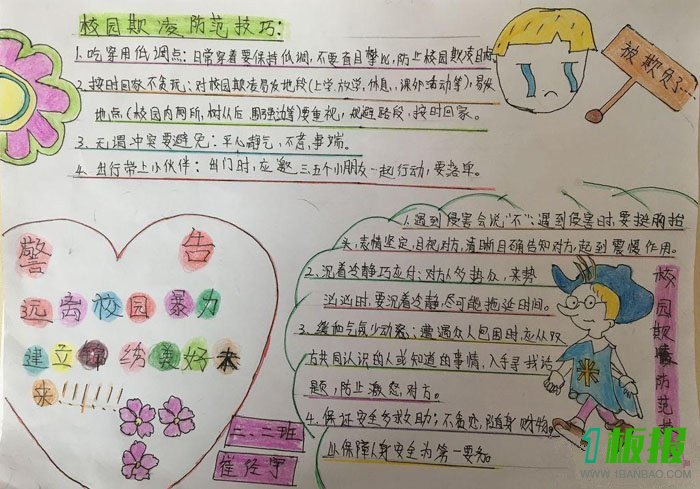 校园欺凌防范技巧:
1.吃穿用低调点:日常穿着要保持低调,不要盲目攀比,防止校园欺凌
2.按时回家不贪玩:对校园欺凌易发地段(上学,放学,休息,课外活动等),易发
地点(校园内厕所,树丛后 围强边等)要重视,规避路段,按时回家。
3.无谓冲突要避免:平心静气,不惹事端。
4.出行带上小伙伴:出门时,应邀三五个小朋友一起行动,要落单。
被欺负了…
警告
远离校园暴力
建立 美好未
来!!!!!!
二.二班
1.遇到侵害会说"不":遇到侵害时,要挺胸抬
头,表情坚定,目视对方,清晰且确告知对方,起到震慑作用。
2.沉着冷静巧应付:对方人多势众,来势
汹汹时,要沉着冷静,尽可能拖延时间。
3.缓和气氛少动怒:遭遇众人包围时,应从双
方共同认识的人或知道的事情,入手寻找话
题,防止激怒对方。
4.保证安全多求助:不贪恋随身财物。
以保障人身安全为第一要务。
校园欺凌防范
1板报
WWW.1BANBAO.COM